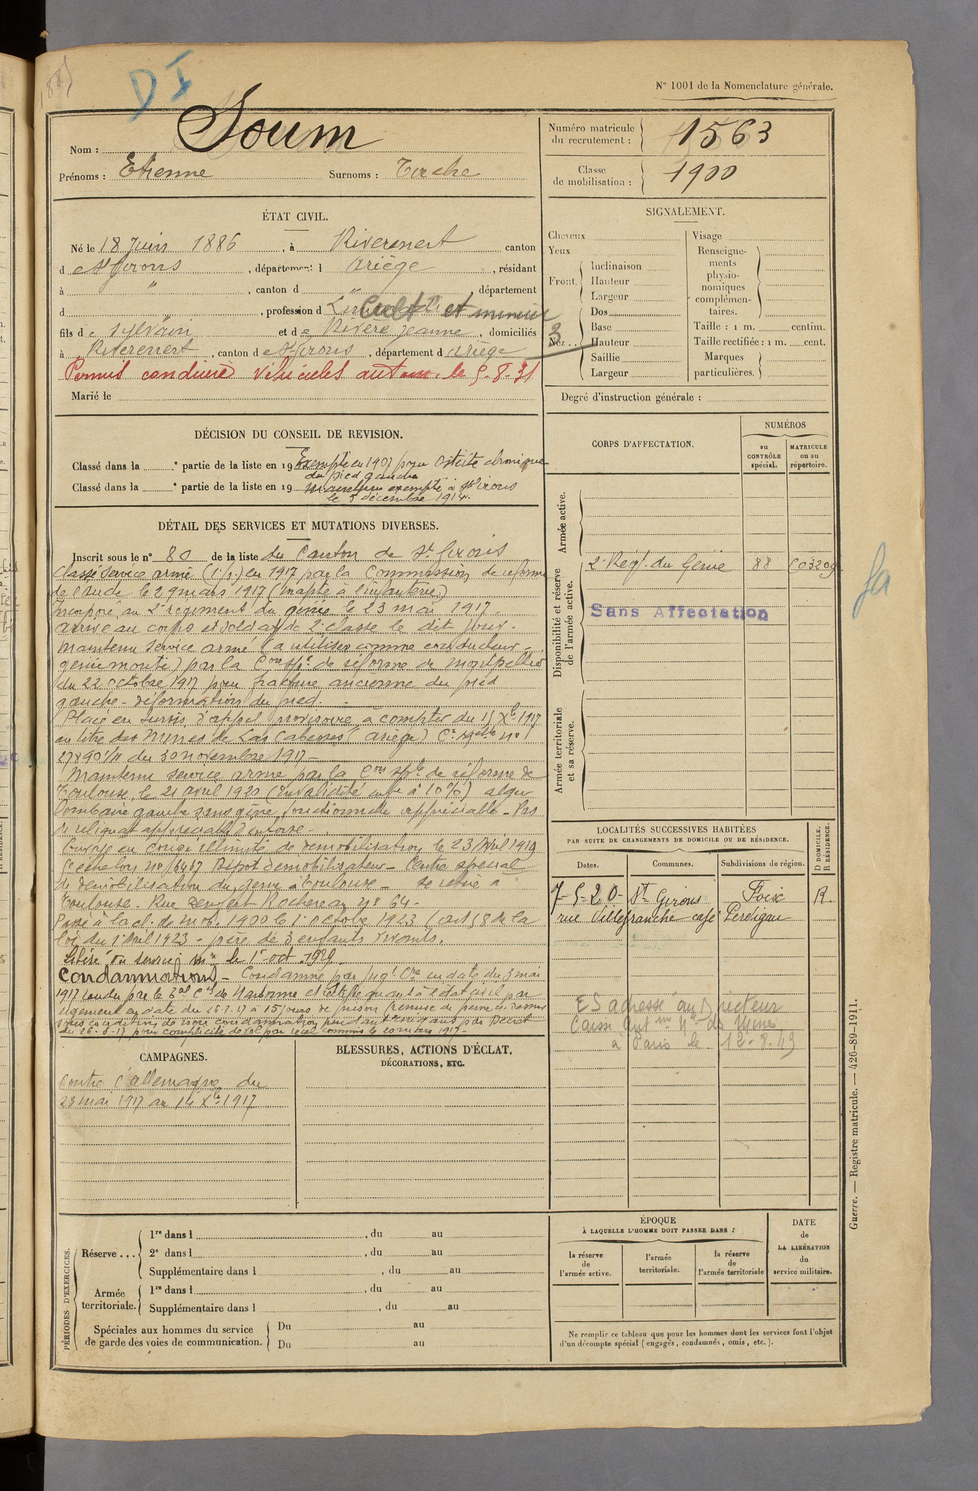 D I
N° 1001 de la Nomenclature générale.
Nom : Soum
Prénoms : Etienne Surnoms :
Numéro matricule du recrutement : 1563
Classe de mobilisation : 1900
ÉTAT CIVIL.
Né le 18 Juin 1886, à Riverenert canton
d St Girons, département d Ariège, résidant
à " , canton d " , département
d , profession d Cultr et mineur
fils de Sylvain et de Rivère Jeanne, domiciliés
à Riverenert, canton de St Girons, département d Ariège
Permis conduire véhicules autom. le 5-8-31
Marié le
SIGNALEMENT.
Cheveux
Yeux
Front. Inclinaison
Hauteur
Largeur
Nez.. Dos
Base
Hauteur
Saillie
Largeur
3
Visage
Renseignements physionomiques complémentaires.
Taille : 1 m. centim.
Taille rectifiée : 1 m. cent.
Marques particulières.
Degré d'instruction générale :
DÉCISION DU CONSEIL DE REVISION.
Classé dans la e partie de la liste en 19 Exempté en 1907 pour Ostéite chronique
du pied gauche
Classé dans la e partie de la liste en 19 Maintenu exempté à St Girons
le 5 décembre 1914.
DÉTAIL DES SERVICES ET MUTATIONS DIVERSES.
Inscrit sous le n° 80 de la liste du Canton de St Girons
Classé Service armé (1 p.) en 1917 par la Commission de réforme
de l'Aude le 29 mars 1917 (Inapte à l'infanterie)
Incorporé au 2e régiment du génie le 23 mai 1917.
Arrivé au corps et soldat de 2e classe le dit jour.
Maintenu service armé (à utiliser comme conducteur
génie monté) par la Cion Sple de réforme de Montpellier
du 22 octobre 1917 pour fracture ancienne du pied
gauche - déformation du pied.
Placé en Sursis d'appel provisoire à compter du 15 Xbre 1917
au titre des Mines de Las Cabesses (Ariège) Cre Melle no
27890 1/4 du 30 novembre 1917 -
Maintenu service armé par la Con Sple de réforme de
Toulouse le 21 avril 1920 (Invalidité infre à 10%) algie
lombaire gauche sans gêne fonctionnelle appréciable - Pas
de reliquat appréciable entorse -
Envoyé en congé illimité de démobilisation le 23 Avril 1919
échelon no Dépôt démobilisateur - Centre spécial
de démobilisation du génie à Toulouse - Se retire à
Toulouse. Rue Denfert Rochereau no 64 -
Passé à la cl. de mob. 1900 le 1er octobre 1923 (art 58 de la
loi du 1er Avril 1923 - père de 3 enfants vivants.
Libéré du service mre le 1er oct. 1929
Condamnations - Condamné par jugt Cre en date du 3 mai
1917 rendu par le Bal Cel de Narbonne et rectifié quant à l'état civil par
Jugement en date du à 15 jours de prison
CAMPAGNES.
Contre l'Allemagne du
23 mai 1917 au 14 Xbre 1917
BLESSURES, ACTIONS D'ÉCLAT,
DÉCORATIONS, ETC.
CORPS D'AFFECTATION.
NUMÉROS
au CONTRÔLE spécial.
MATRICULE ou au répertoire.
Armée active.
Disponibilité et réserve de l'armée active.
2e Régt du Génie 88
Sans Affectation
Armée territoriale et sa réserve.
LOCALITÉS SUCCESSIVES HABITÉES
PAR SUITE DE CHANGEMENTS DE DOMICILE OU DE RÉSIDENCE.
Dates. Communes. Subdivisions de région. D DOMICILE, R RÉSIDENCE.
7-5-20- St Girons Foix R.
rue Villefranche café Perdigau
ES adressé au Directeur
Caisse Autme Nle des Mines
à Paris le 12.8.49
Guerre. — Registre matricule. — 426-89-1911.
PÉRIODES D'EXERCICES.
Réserve ... 1re dans l , du au
2e dans l , du au
Supplémentaire dans l , du au
Armée territoriale. 1re dans l , du au
Supplémentaire dans l , du au
Spéciales aux hommes du service de garde des voies de communication. Du au
Du au
ÉPOQUE
À LAQUELLE L'HOMME DOIT PASSER DANS :
la réserve de l'armée active.
l'armée territoriale.
la réserve de l'armée territoriale
DATE de LA LIBÉRATION du service militaire.
Ne remplir ce tableau que pour les hommes dont les services font l'objet
d'un décompte spécial (engagés, condamnés, omis, etc.).